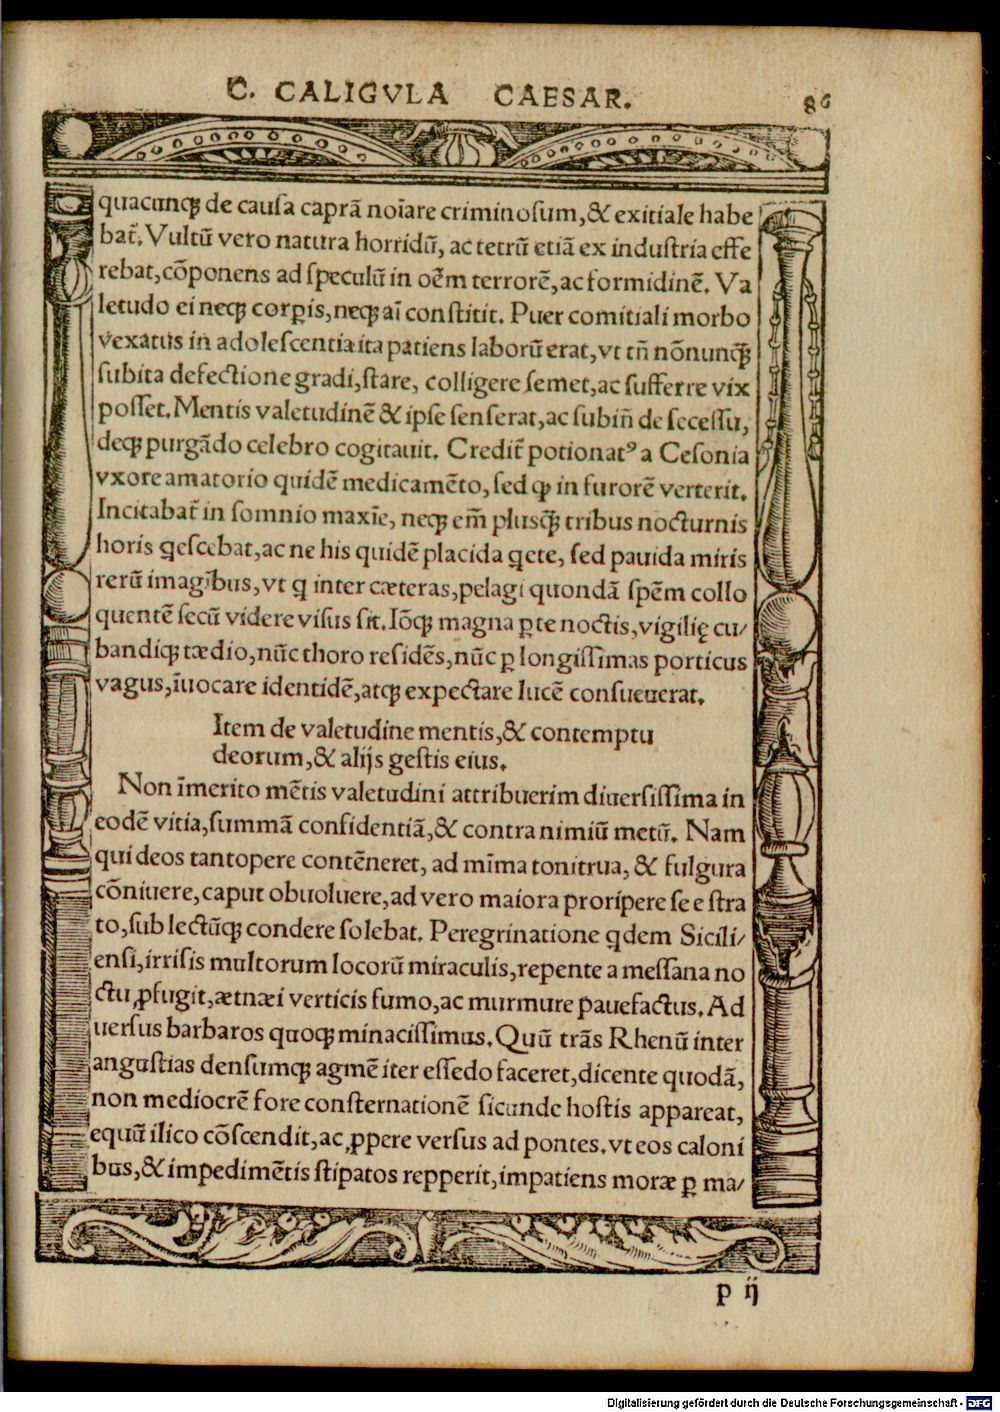 C. CALIGVLA CAESAR.
86
quacunqꝫ de causa caprā noīare criminosum, & exitiale habe
bat̃. Vultũ vero natura horridũ, ac tetrũ etiā ex industria effe
rebat, cõponens ad speculũ in oẽm terrorẽ, ac formidinẽ. Va
letudo ei neqꝫ corꝑis, neqꝫ aĩ constitit. Puer comitiali morbo
vexatus in adolescentia ita patiens laborũ erat, vt tñ nõnunqꝫ̃
subita defectione gradi, stare, colligere semet, ac sufferre vix
posset. Mentis valetudinẽ & ipse senserat, ac subiñ de secessu,
deqꝫ purgãdo celebro cogitauit. Credit̃ potionatꝰ a Cesonia
vxore amatorio quidẽ medicamẽto, sed ꝙ in furorẽ verterit.
Incitabat̃ in somnio maxiẽ, neqꝫ em̃ plusqꝫ̃ tribus nocturnis
horis ꝗescebat, ac ne his quidẽ placida ꝗete, sed pauida miris
rerũ imagibus, vt ꝗ inter cæteras, pelagi quondã spẽm collo
quentẽ secũ videre visus sit. Iõqꝫ magna ꝑte noctis, vigilię cu/
bandiqꝫ tædio, nũc thoro residẽs, nũc ꝑ longissimas porticus
vagus, ĩuocare identidẽ, atqꝫ expectare lucẽ consueuerat.
Item de valetudine mentis, & contemptu
deorum, & alijs gestis eius.
Non ĩmerito mẽtis valetudini attribuerim diuersissima in
eodẽ vitia, summã confidentiã, & contra nimiũ metũ. Nam
qui deos tantopere contẽneret, ad mĩma tonitrua, & fulgura
cõniuere, caput obuoluere, ad vero maiora proripere se e stra
to, sub lectũqꝫ condere solebat. Peregrinatione ꝗdem Sicili/
ensi, irrisis multorum locorũ miraculis, repente a messana no
ctu ꝓfugit, ætnæi verticis fumo, ac murmure pauefactus. Ad
uersus barbaros quoqꝫ minacissimus. Quũ trãs Rhenũ inter
angustias densumqꝫ agmẽ iter essedo faceret, dicente quodã,
non mediocrẽ fore consternationẽ sicunde hostis appareat,
equũ ilico cõscendit, ac ꝓpere versus ad pontes. vt eos caloni
bus, & impedimẽtis stipatos repperit, impatiens moræ ꝑ ma/
p ij
Digitalisierung gefördert durch die Deutsche Forschungsgemeinschaft - DFG